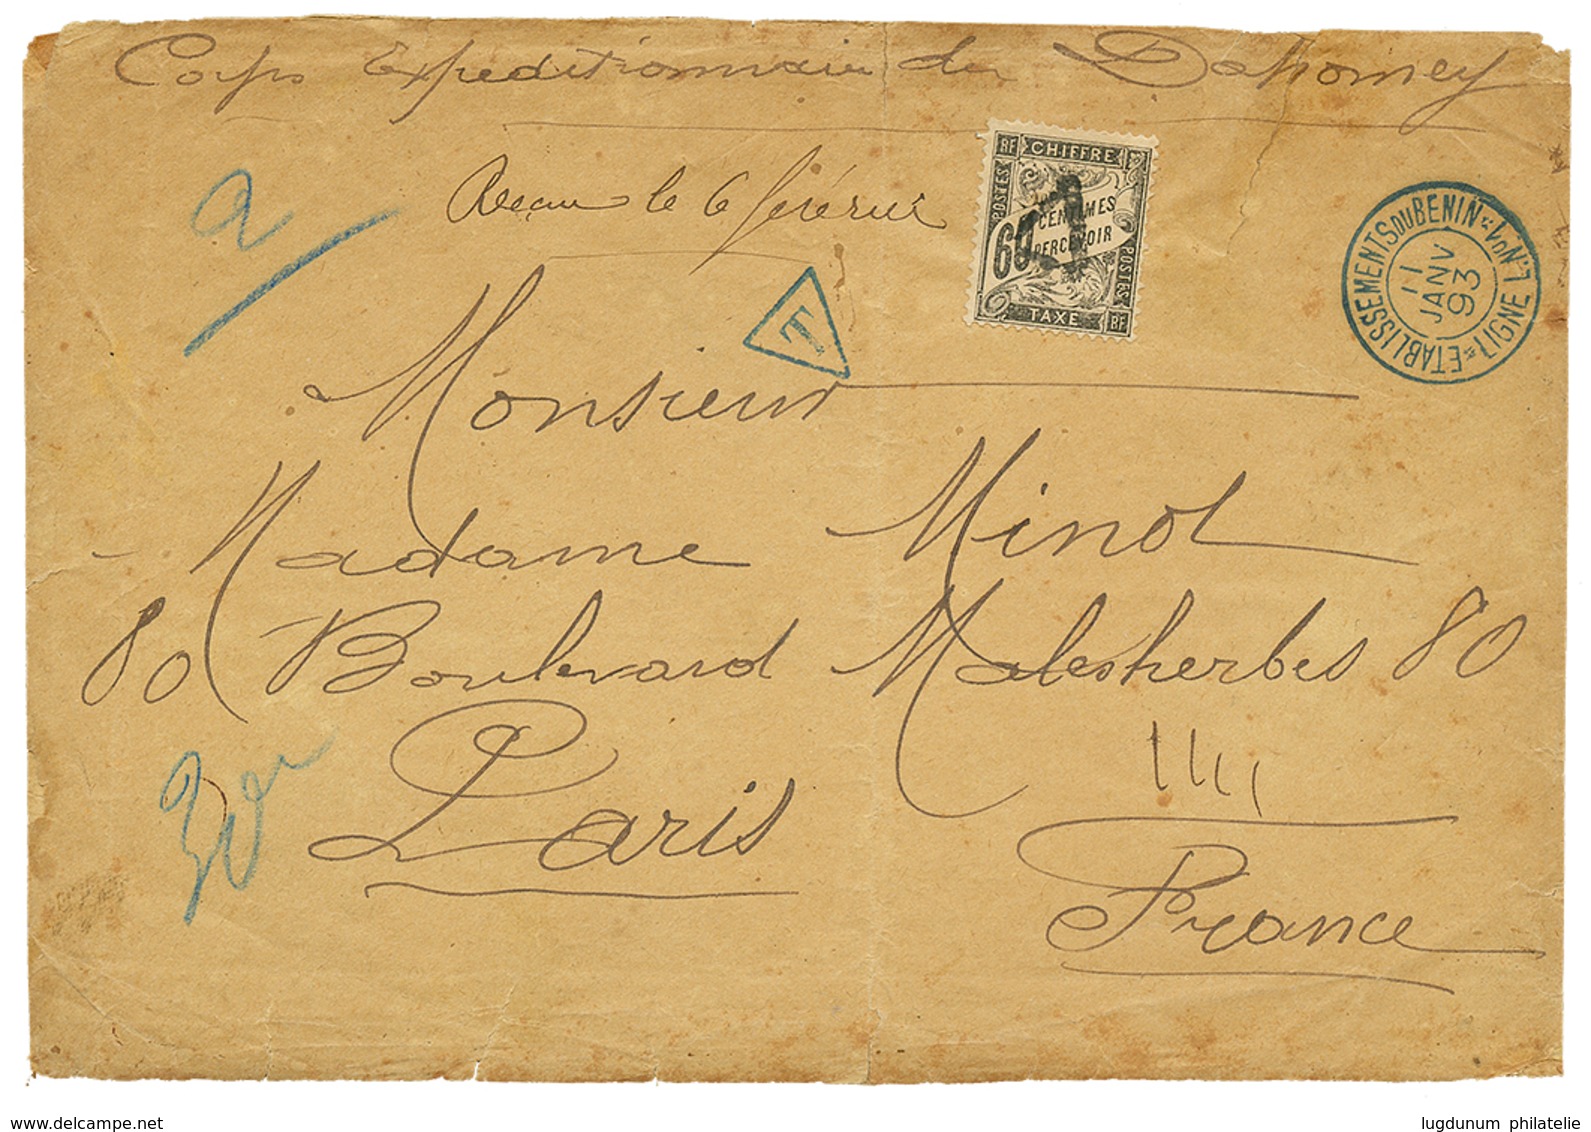 Corps Expeditionnaire du Dahomey
Recu le 6 février
RF CHIFFRE
POSTES
60 CENTIMES
PERCEVOIR
POSTES
TAXE RF
T
ETABLISSEMENTS DU BENIN
LIGNE L.N°1
11
JANV
93
Monsieur
Madame Minot
80 Boulevard Malesherbes 80
Paris
France
www.delcampe.net
lugdunum philatelie